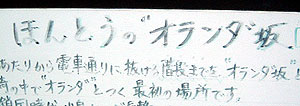 ほんとうの"オランダ坂
あたりから電車通りに抜け、階段までを、"オランダ坂"
昔の中で"オランダ"とつく最初の場所です。